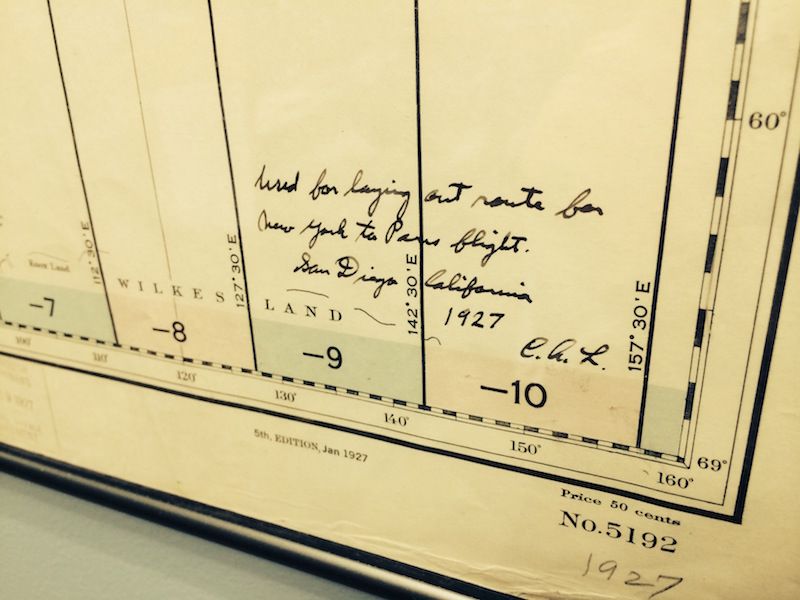 60°
Used for laying out route for
New York to Paris flight.
San Diego California
1927
C.A.L.
112°30'E
127°30'E
142°30'E
157°30'E
WILKES LAND
-7
-8
-9
-10
100°
110°
120°
130°
140°
150°
160°
69°
5th. EDITION, Jan 1927
Price 50 cents
No. 5192
1927